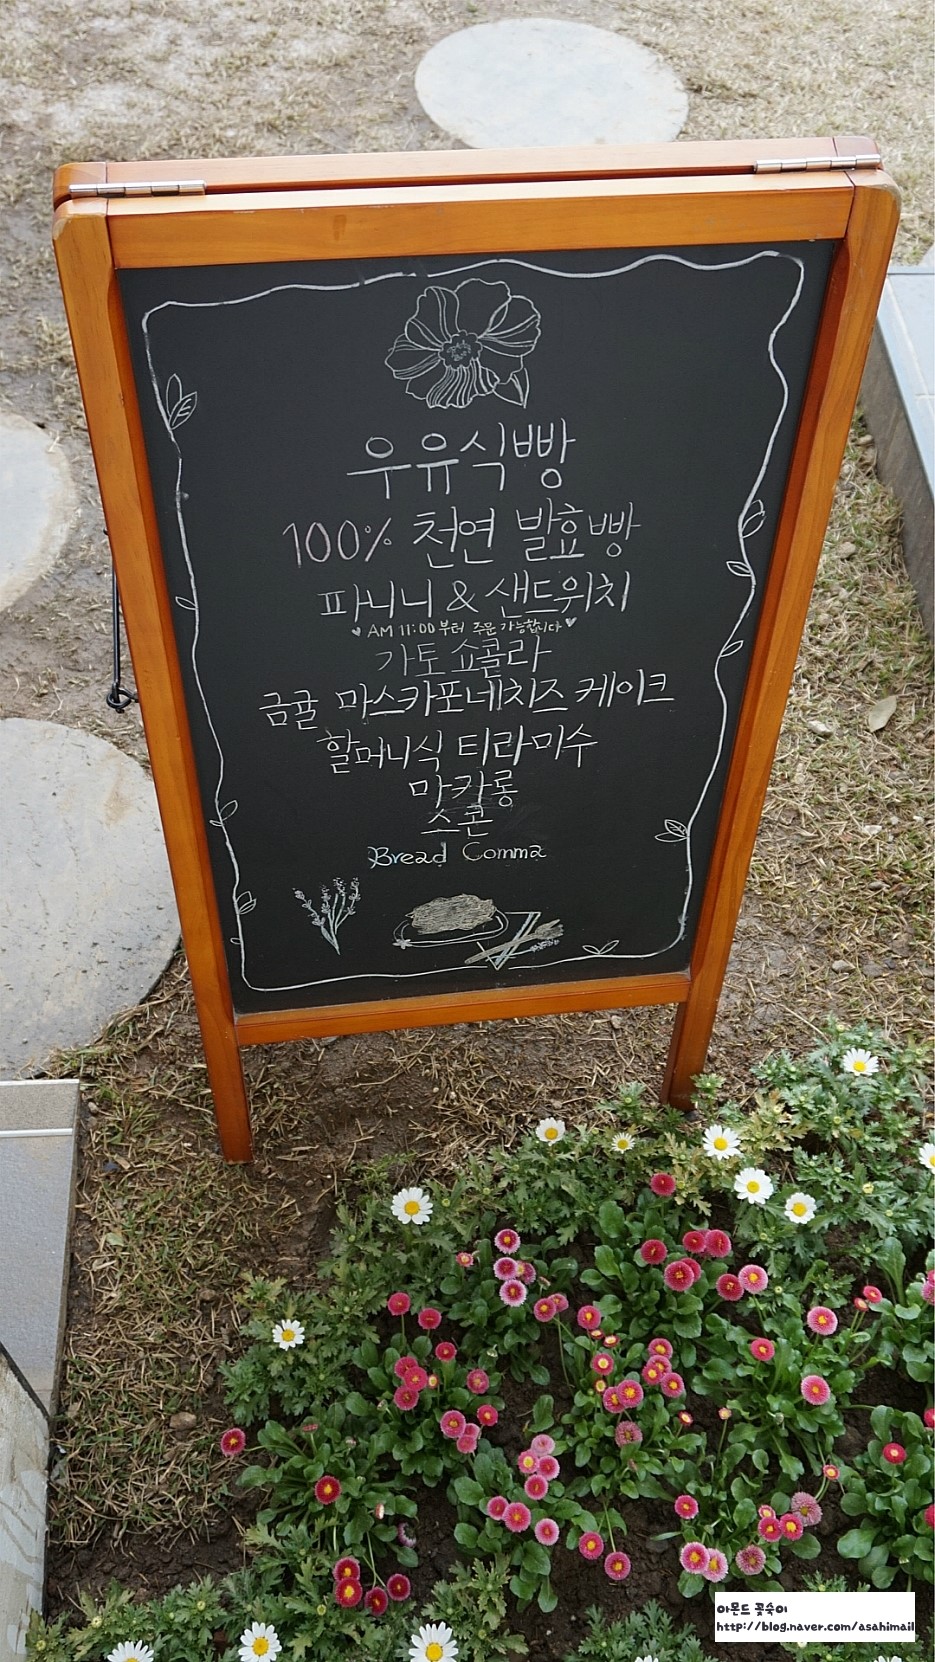 우유식빵
100% 천연 발효빵
파니니 & 샌드위치
♥ AM 11:00 부터 주문 가능합니다 ♥
가토 쇼콜라
금귤 마스카포네치즈 케이크
할머니식 티라미수
마카롱
스콘
Bread Comma
아몬드 꽃숙이
http://blog.naver.com/asahimail